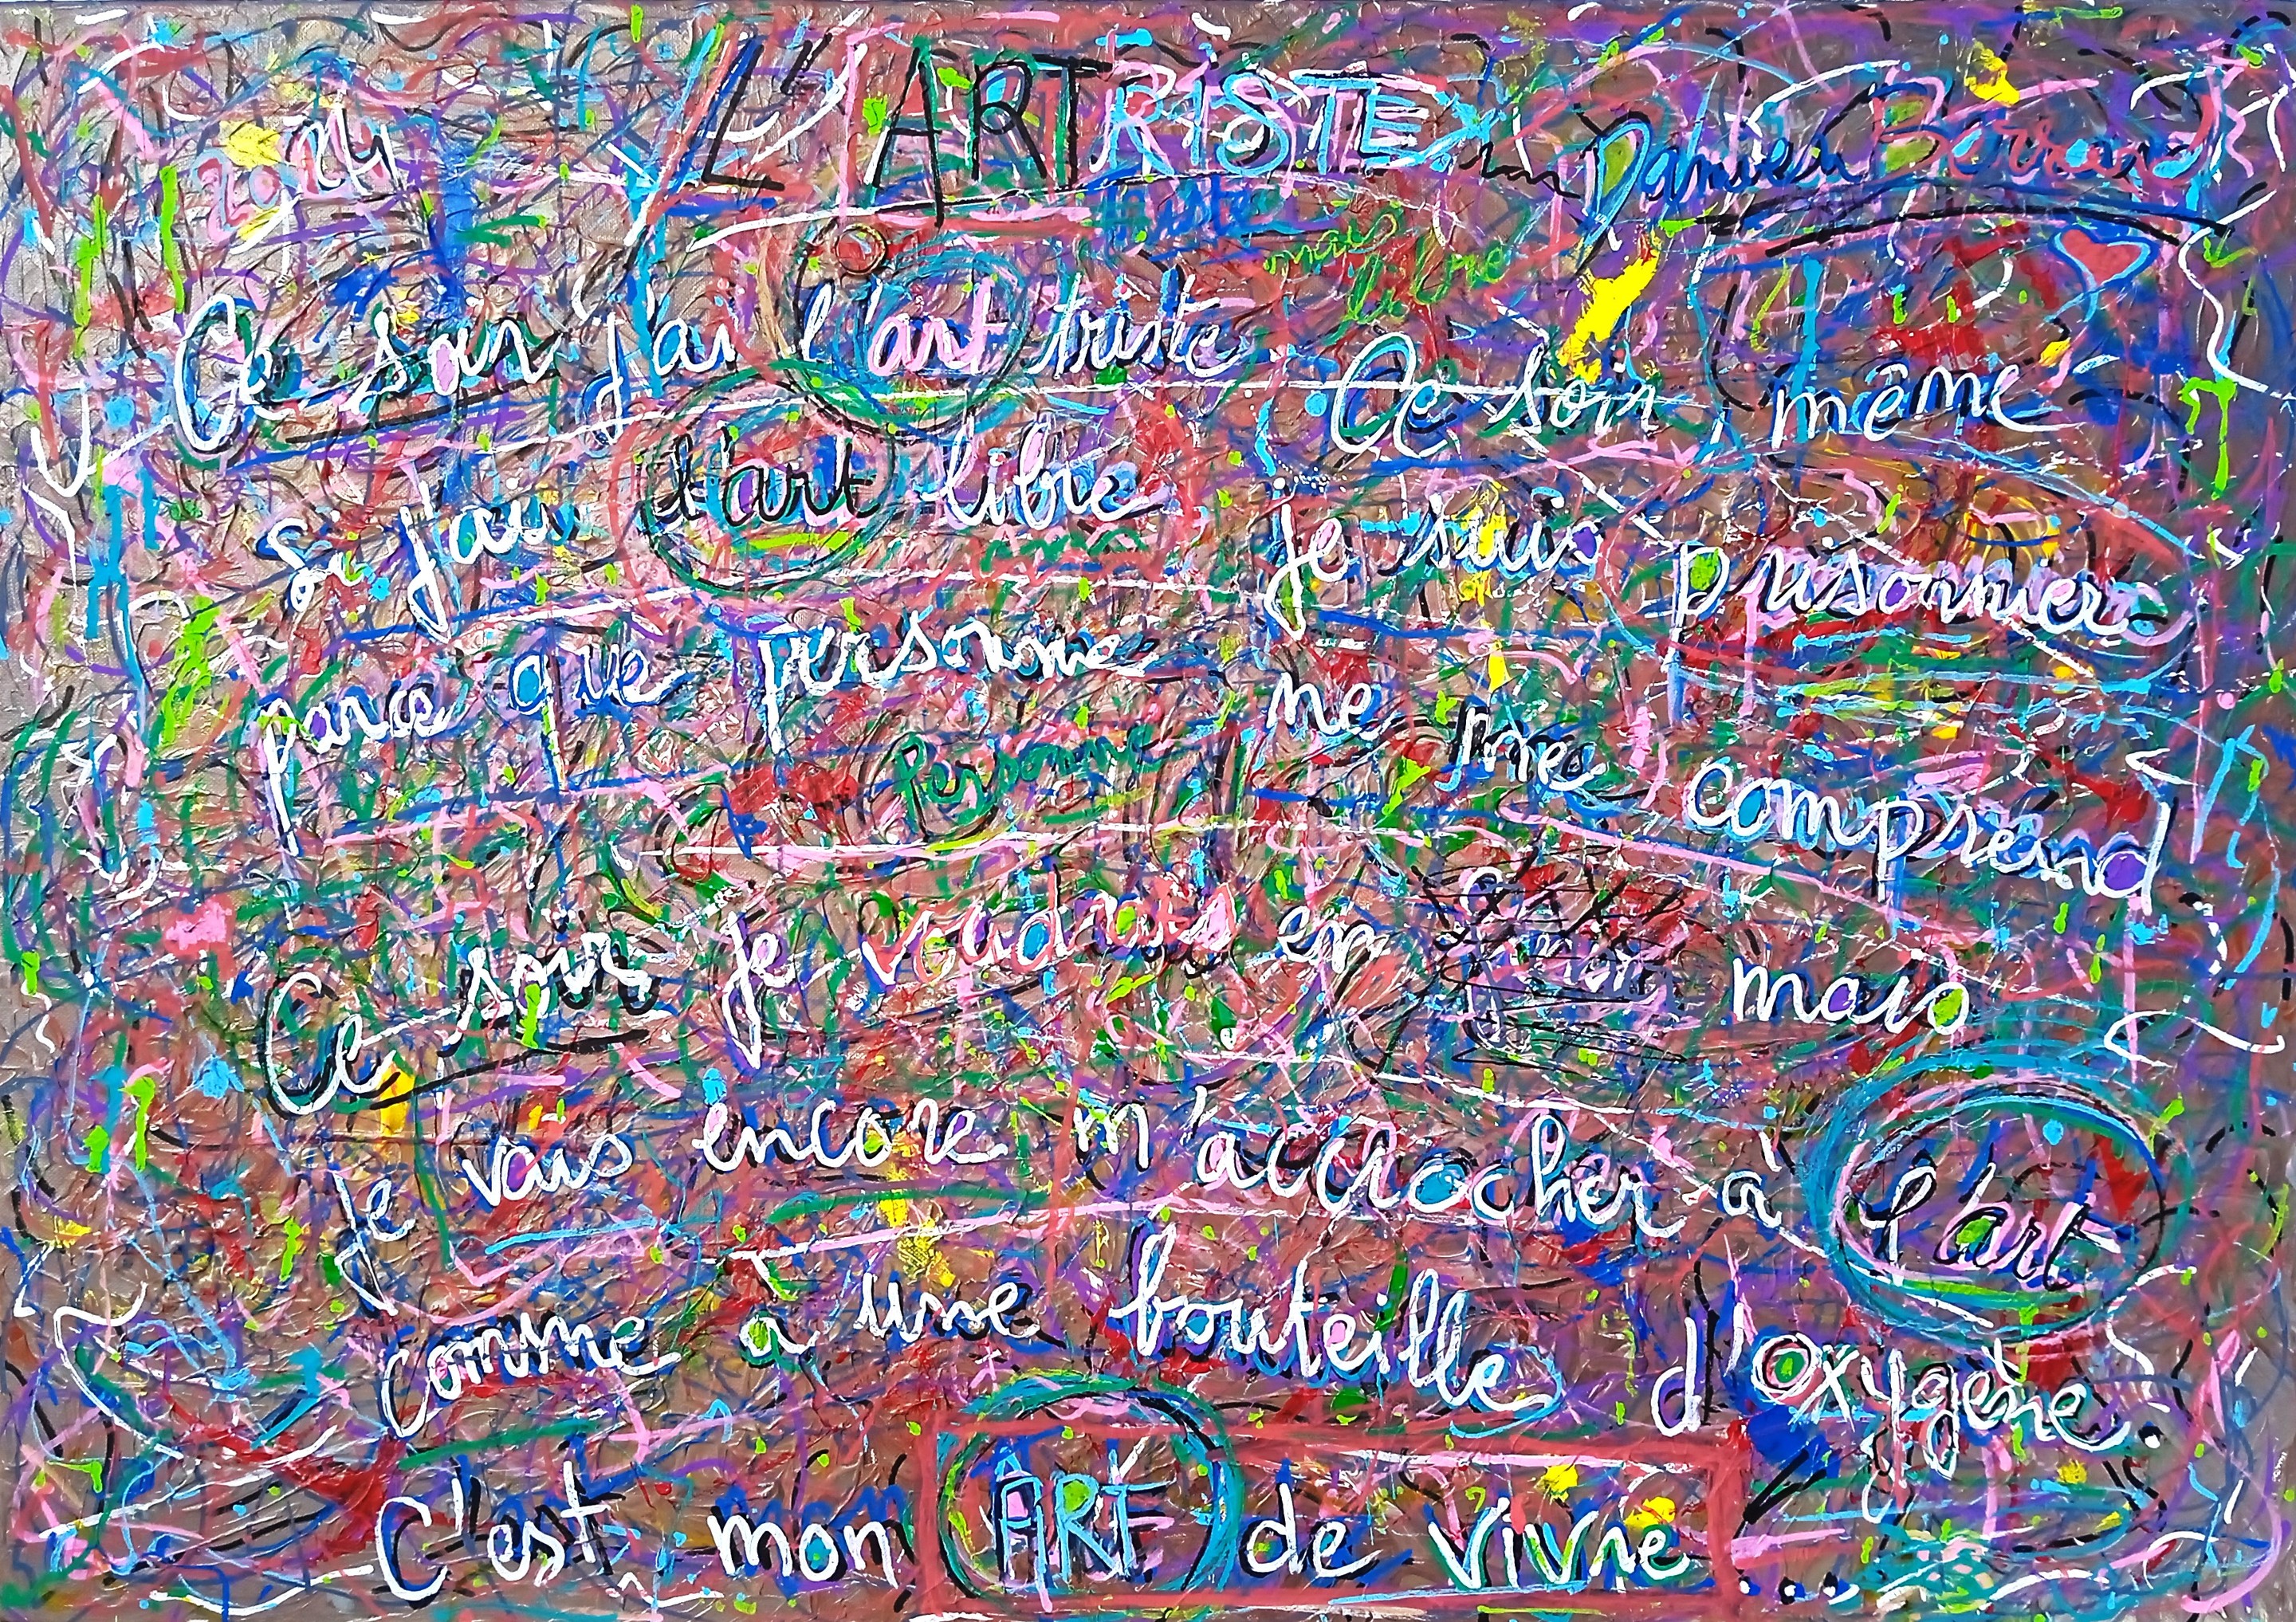 2024 L'ARTRISTE Damien Berrard
triste mais libre
Ce soir j'ai l'art triste
Ce soir, même
si j'ai l'art libre
je suis prisonnier
parce que personne
ne me comprend
Personne
Ce soir je voudrais en mais
je vais encore m'accrocher à l'art
comme à une bouteille d'oxygène.
C'est mon ART de vivre ...